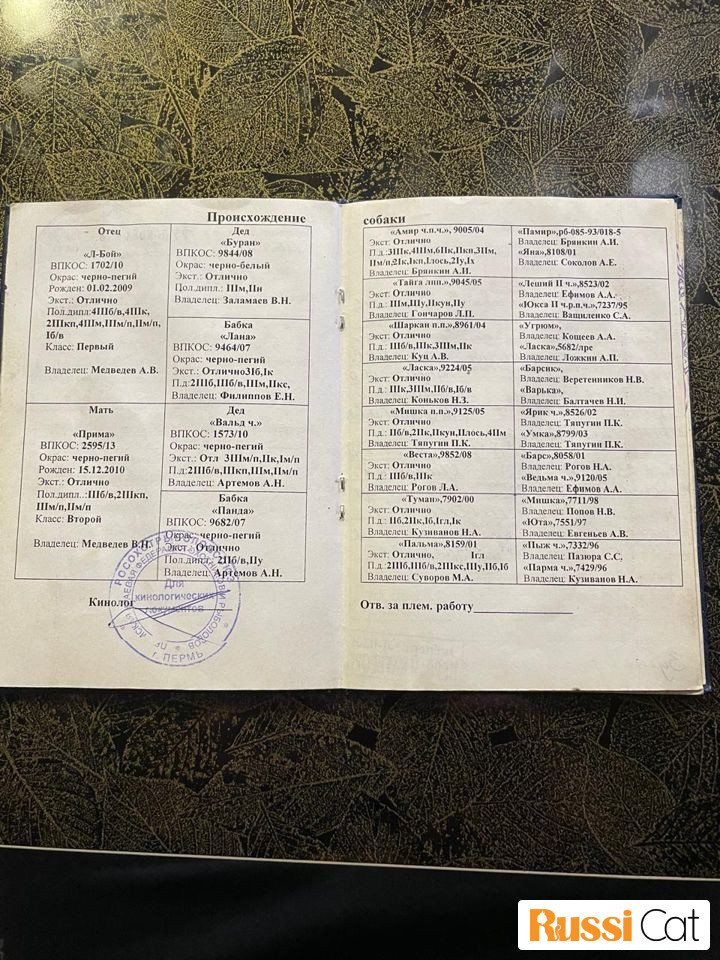 Происхождение
собаки
Отец
«Л-Бой»
ВПКОС: 1702/10
Окрас: черно-пегий
Рожден: 01.02.2009
Экст.: Отлично
Пол.дипл:4IIIб/в,4IIIк,
2IIIкп,4IIIм,IIIм/п,IIм/п,
Iб/в
Класс: Первый
Владелец: Медведев А.В.
Дед
«Буран»
ВПКОС: 9844/08
Окрас: черно-белый
Экст.: Отлично
Цол.дипл.: IIIм,IIн
Владелец: Заламаев В.Н.
Бабка
«Лана»
ВПКОС: 9464/07
Окрас: черно-пегий
Экст.: Отлично3Iб,Iк
П.д:2IIIб,IIIб/в,IIIм,IIкс,
Владелец: Филиппов Е.Н.
Мать
«Прима»
ВПКОС: 2595/13
Окрас: черно-пегий
Рожден: 15.12.2010
Экст.: Отлично
Пол.дипл.:IIIб/в,2IIIкп,
IIIм/п,IIм/п
Класс: Второй
Владелец: Медведев В.Н.
Дед
«Вальд ч.»
ВПКОС: 1573/10
Окрас: черно-пегий
Экст.: Отл 3IIIм/п,IIк,Iм/п
П.д:2IIIб/в,IIIкп,IIIм,IIм/п
Владелец: Артемов А.Н.
Бабка
«Панда»
ВПКОС: 9682/07
Окрас: черно-пегий
Экст.: Отлично
Пол.дипл: 2IIб/в,IIу
Владелец: Артемов А.Н.
Кинолог
Для
кинологических
документов
г. ПЕРМЬ
«Амир ч.п.ч.», 9005/04
Экст: Отлично
П.д.:3IIIк,4IIIм,6IIк,IIкп,3IIм,
IIм/п,2Iк,Iкп,Iлось,2Iу,Iх
Владелец: Брянкин А.И.
«Памир»,рб-085-93/018-5
Владелец: Брянкин А.И.
«Яна»,8108/01
Владелец: Соколов А.Е.
«Тайга лпп.»,9045/05
Экст: Отлично
П.д.: IIIм,IIIу,IIкун,IIу
Владелец: Гончаров Л.П.
«Леший II ч.»,8523/02
Владелец: Ефимов А.А.
«Юкса II ч.р.п.ч.»,7237/95
Владелец: Ващиленко С.А.
«Шаркан п.п.»,8961/04
Экст: Отлично
П.д.: IIIб/в,IIIк,3IIIм,IIк
Владелец: Куц А.В.
«Угрюм»,
Владелец: Кощеев А.А.
«Ласка»,5682/лре
Владелец: Ложкин А.П.
«Ласка»,9224/05
Экст: Отлично
П.д.: IIIк,3IIIм,IIб/в,Iб/в
Владелец: Коньков Н.З.
«Барсик»,
Владелец: Веретенников Н.В.
«Варька»,
Владелец: Балтачев Н.И.
«Мишка п.п.»,9125/05
Экст: Отлично
П.д.: IIб/в,2IIк,IIкун,IIлось,4IIм
Владелец: Тяпугин П.К.
«Ярик ч.»,8526/02
Владелец: Тяпугин П.К.
«Умка»,8799/03
Владелец: Тяпугин П.К.
«Веста»,9852/08
Экст: Отлично
П.д.: IIIб/в,IIIк
Владелец: Рогов Л.А.
«Барс»,8058/01
Владелец: Рогов Н.А.
«Ведьма ч.»,9120/05
Владелец: Ефимов А.А.
«Туман»,7902/00
Экст: Отлично
П.д.: IIб,2IIк,Iб,Iгл,Iк
Владелец: Кузиванов Н.А.
«Мишка»,7711/98
Владелец: Попов Н.В.
«Юта»,7551/97
Владелец: Евгеньев А.В.
«Пальма»,8159/01
Экст: Отлично, Iгл
П.д.:2IIIб,IIIб/в,2IIIкс,IIIу,IIб,Iб
Владелец: Суворов М.А.
«Пыж ч.»,7332/96
Владелец: Пазюра С.С,
«Парма ч.»,7429/96
Владелец: Кузиванов Н.А.
Отв. за плем. работу
Russi Cat